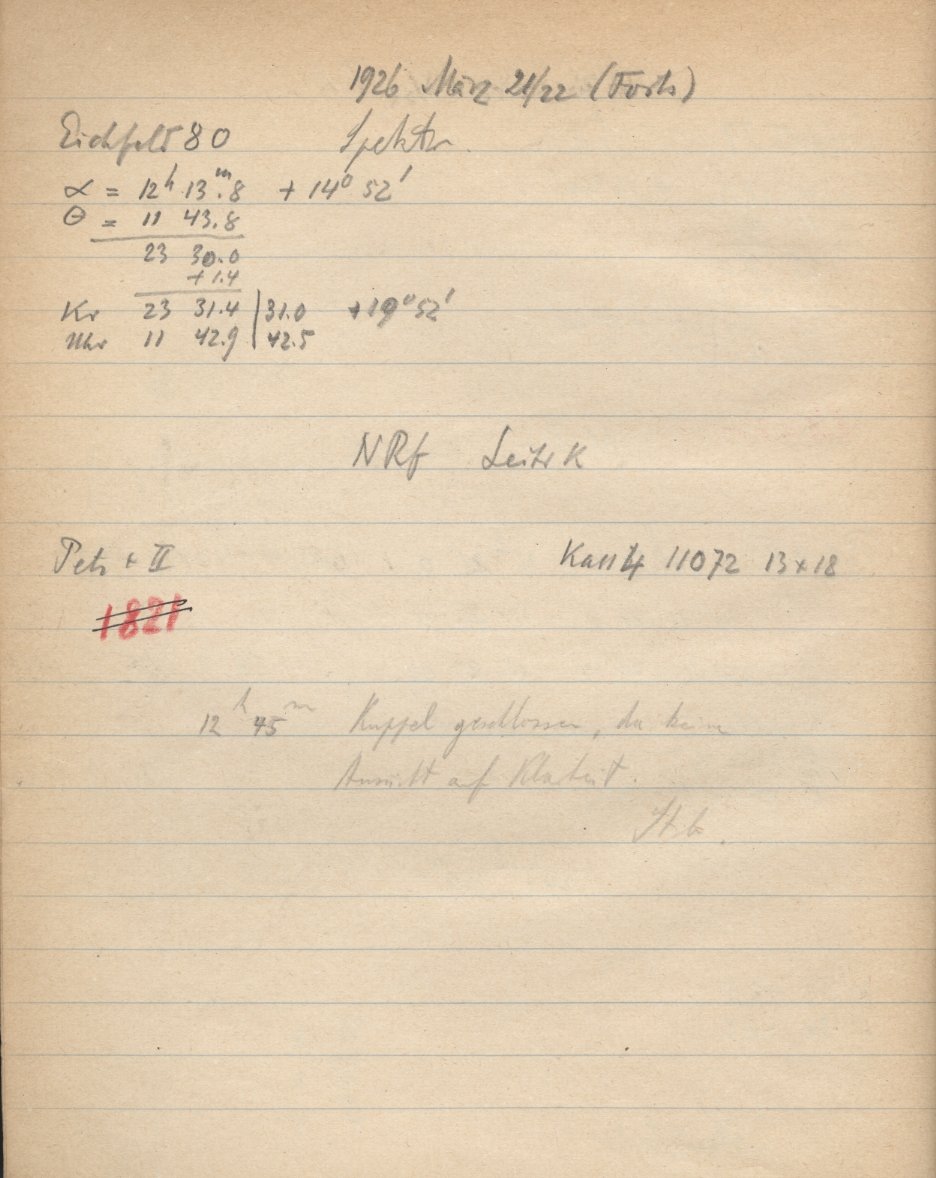 1926 März 21/22 (Forts)
Eichfeld 80 Spektr.
α = 12h 13m.8 + 14° 52'
Θ = 11 43.8
23 30.0
+ 1.4
Kr 23 31.4 | 31.0 + 19° 52'
Uhr 11 42.9 | 42.5
NRf Leitr K
Petz + II Kass 4 11072 13 x 18
1821
12h 45m Kuppel geschlossen, da keine
Aussicht auf Klarheit.